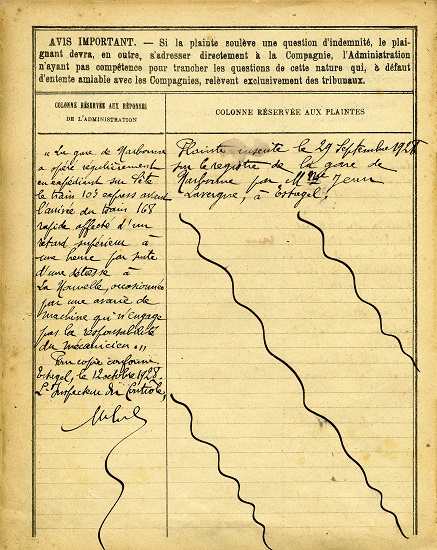 AVIS IMPORTANT. — Si la plainte soulève une question d'indemnité, le plai-
gnant devra, en outre, s'adresser directement à la Compagnie, l'Administration
n'ayant pas compétence pour trancher les questions de cette nature qui, à défaut
d'entente amiable avec les Compagnies, relèvent exclusivement des tribunaux.
COLONNE RÉSERVÉE AUX RÉPONSES
DE L'ADMINISTRATION
« La gare de Narbonne
a opéré régulièrement
en expédiant sur Cète
le train 105 express avant
l'arrivée du train 168
rapide affecté d'un
retard supérieur à
une heure par suite
d'une détresse à
La Nouvelle, occasionnée
par une avarie de
machine qui n'engage
pas la responsabilité
du mécanicien. »
Pour copie conforme
Estagel, le 12 octobre 1928.
L'Inspecteur du Contrôle,
COLONNE RÉSERVÉE AUX PLAINTES
Plainte inscrite le 29 Septembre 1928
sur le registre de la gare de
Narbonne par M Jean
Lavergne, à Estagel.